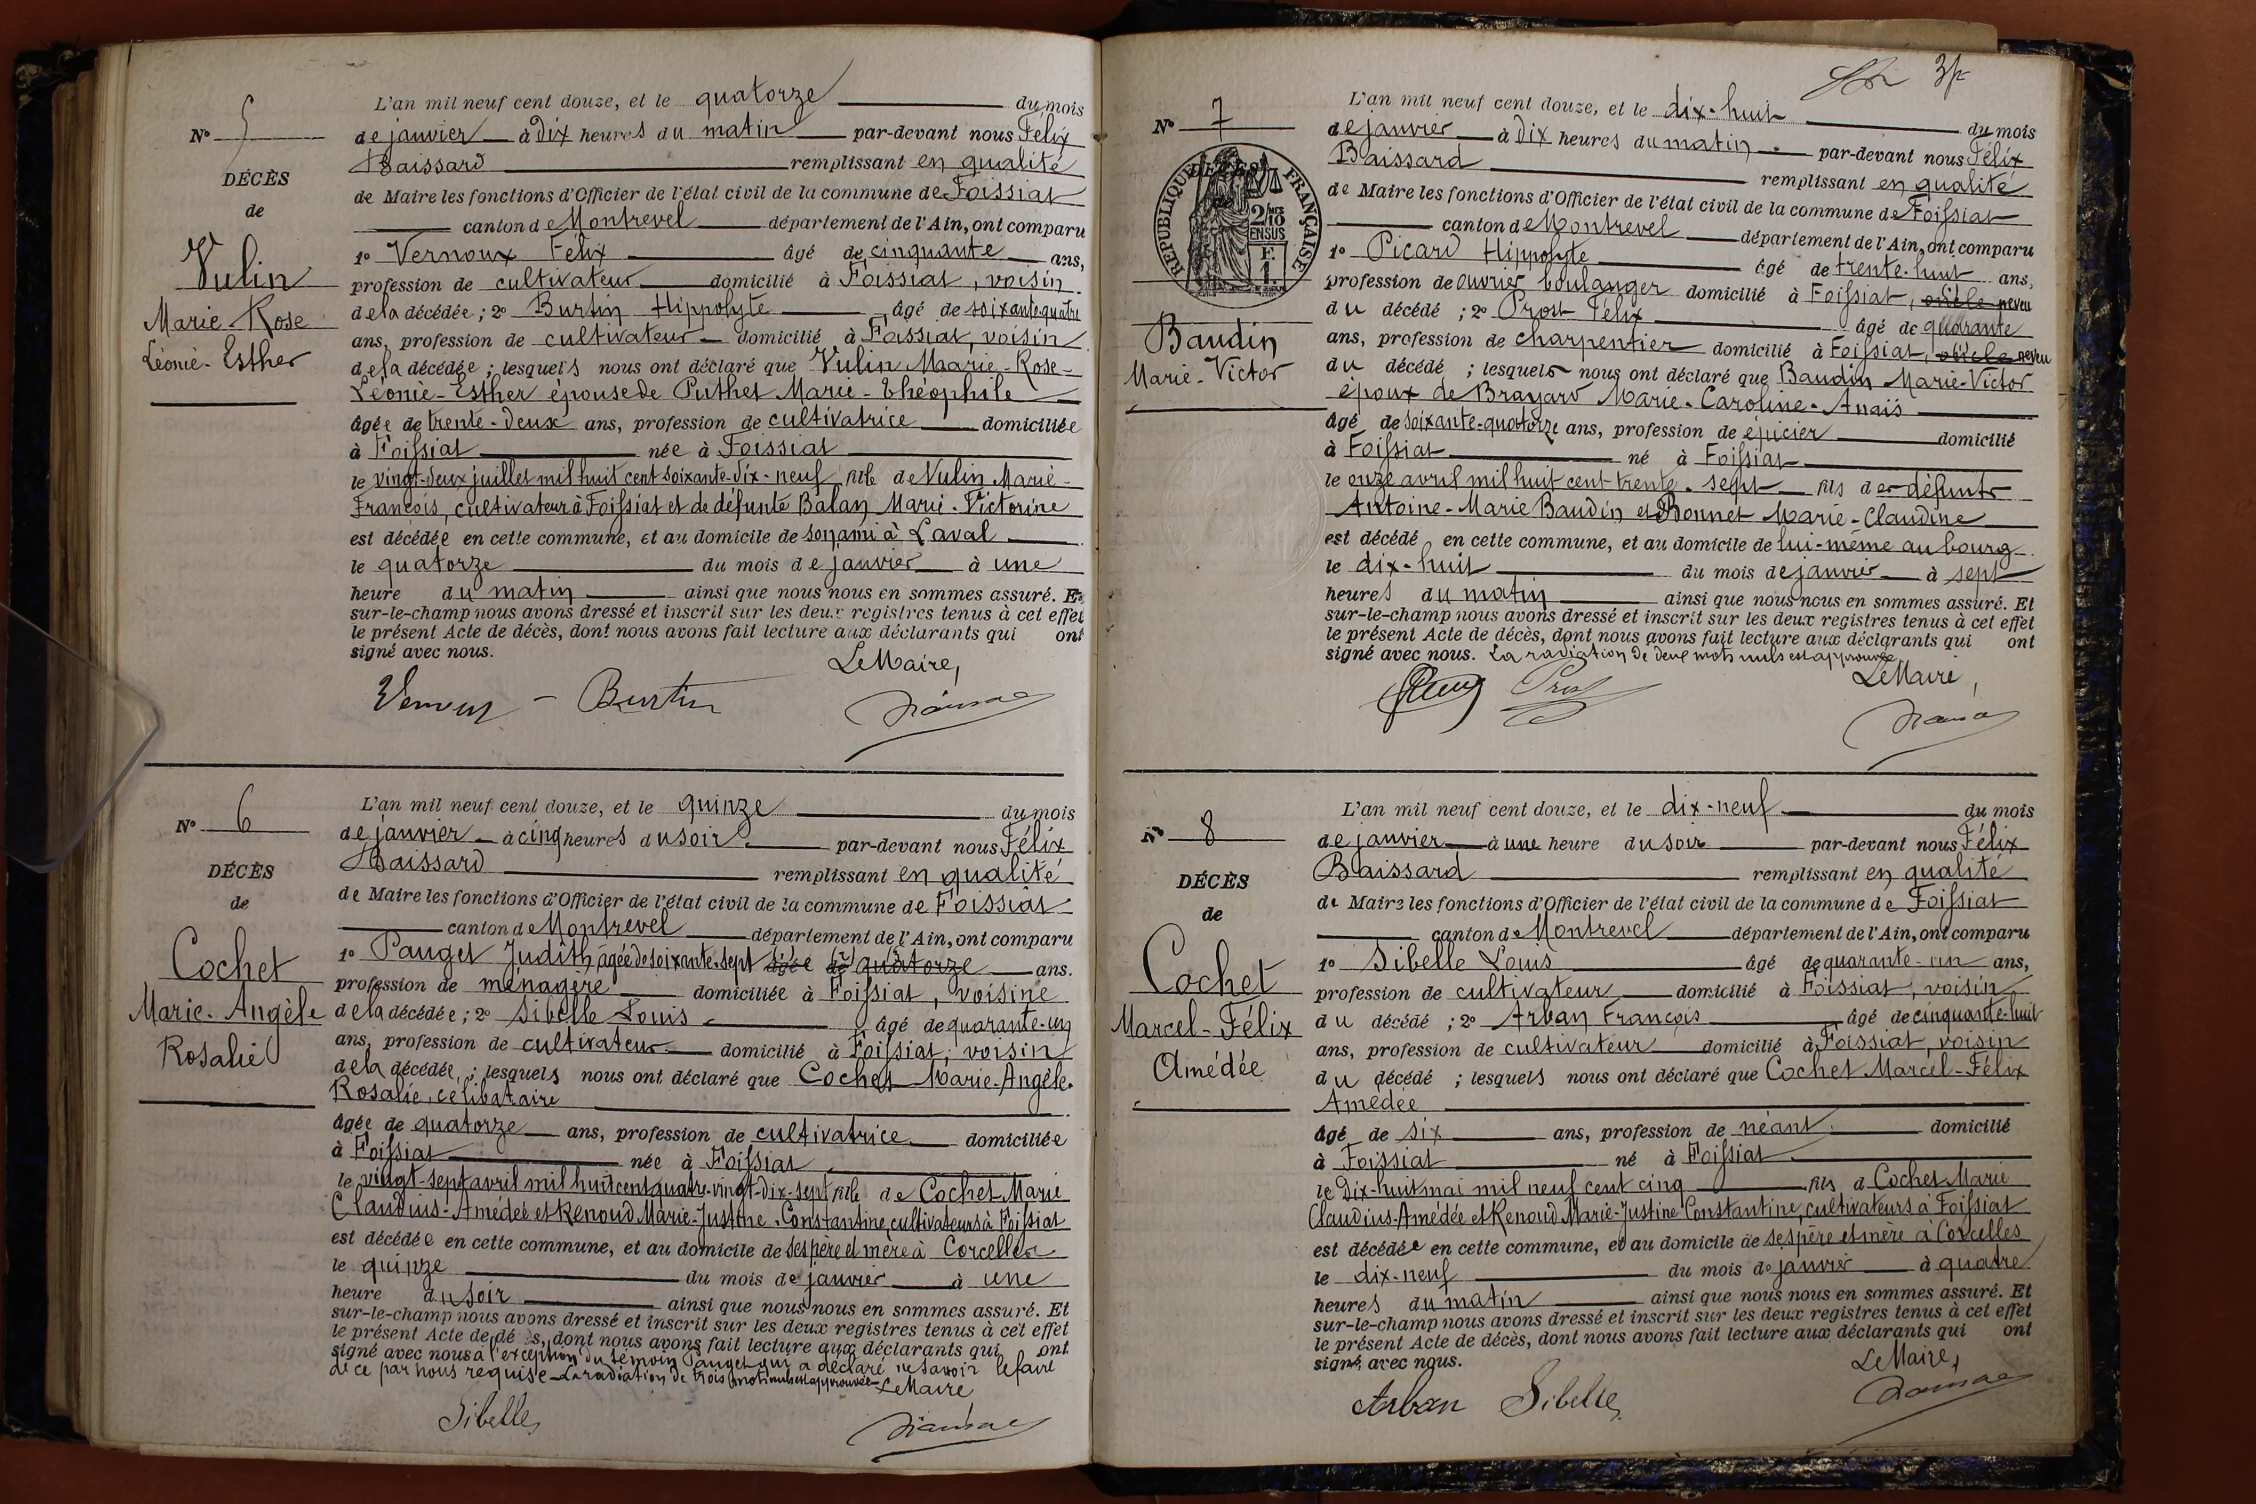 N° 5
DÉCÈS
de
Vulin
Marie-Rose
Léonie-Esther
L'an mil neuf cent douze, et le quatorze du mois
de janvier à dix heures du matin par-devant nous Félix
Baissard remplissant en qualité
de Maire les fonctions d'Officier de l'état civil de la commune de Foissiat
canton de Montrevel département de l'Ain, ont comparu
1° Vernoux Felix âgé de cinquante ans,
profession de cultivateur domicilié à Foissiat, voisin
de la décédée ; 2° Burtin Hippolyte âgé de soixante quatre
ans, profession de cultivateur domicilié à Foissiat, voisin
de la décédée ; lesquels nous ont déclaré que Vulin Maarie-Rose-
Léonie-Esther épouse de Puthet Marie-Théophile
âgée de trente-deux ans, profession de cultivatrice domiciliée
à Foissiat née à Foissiat
le vingt-deux juillet mil huit cent soixante-dix-neuf fille de Vulin Marie-
François, cultivateur à Foissiat et de défunte Balan Marie-Victorine
est décédée en cette commune, et au domicile de son ami à Laval
le quatorze du mois de janvier à une
heure du matin ainsi que nous nous en sommes assuré. Et
sur-le-champ nous avons dressé et inscrit sur les deux registres tenus à cet effet
le présent Acte de décès, dont nous avons fait lecture aux déclarants qui ont
signé avec nous.
Le Maire,
Burtin
N° 6
DÉCÈS
de
Cochet
Marie-Angèle
Rosalie
L'an mil neuf cent douze, et le quinze du mois
de janvier à cinq heures du soir par-devant nous Félix
Baissard remplissant en qualité
de Maire les fonctions d'Officier de l'état civil de la commune de Foissiat
canton de Montrevel département de l'Ain, ont comparu
1° Pauget Judith agée de soixante-sept âgée de quatorze ans.
profession de ménagère domiciliée à Foissiat, voisine
de la décédée ; 2° Sibelle Louis âgé de quarante-un
ans, profession de cultivateur domicilié à Foissiat, voisin
de la décédée, ; lesquels nous ont déclaré que Cochet Marie-Angèle-
Rosalie, célibataire
âgée de quatorze ans, profession de cultivatrice domiciliée
à Foissiat née à Foissiat
le vingt-sept avril mil huit cent quatre-vingt-dix-sept fille de Cochet Marie
Claudius-Amédée et Renoud Marie-Justine-Constantine, cultivateurs à Foissiat
est décédée en cette commune, et au domicile de ses père et mère à Corcelles
le quinze du mois de janvier à une
heure du soir ainsi que nous nous en sommes assuré. Et
sur-le-champ nous avons dressé et inscrit sur les deux registres tenus à cet effet
le présent Acte de dé s, dont nous avons fait lecture aux déclarants qui ont
signé avec nous à l'exception du témoin Pauget qui a déclaré ne savoir le faire
de ce par nous requise. La radiation de trois mots nuls est approuvée
Le Maire
Sibelle
3
N° 7
DÉCÈS
RÉPUBLIQUE FRANÇAISE
2/10 EN SUS
F. 1
Baudin
Marie-Victor
L'an mil neuf cent douze, et le dix-huit du mois
de janvier à dix heures du matin par-devant nous Félix
Baissard remplissant en qualité
de Maire les fonctions d'Officier de l'état civil de la commune de Foissiat
canton de Montrevel département de l'Ain, ont comparu
1° Picard Hippolyte âgé de trente-huit ans,
profession de ouvrier boulanger domicilié à Foissiat, neveu
du décédé ; 2° Prost Félix âgé de quarante
ans, profession de charpentier domicilié à Foissiat, neveu
du décédé ; lesquels nous ont déclaré que Baudin Marie-Victor
époux de Brayard Marie-Caroline-Anaïs
âgé de soixante-quatorze ans, profession de épicier domicilié
à Foissiat né à Foissiat
le onze avril mil huit cent trente-sept fils des défunts
Antoine-Marie Baudin et Bonnet Marie-Claudine
est décédé en cette commune, et au domicile de lui-même au bourg
le dix-huit du mois de janvier à sept
heures du matin ainsi que nous nous en sommes assuré. Et
sur-le-champ nous avons dressé et inscrit sur les deux registres tenus à cet effet
le présent Acte de décès, dont nous avons fait lecture aux déclarants qui ont
signé avec nous. La radiation de deux mots nuls est approuvée
Le Maire,
Prost
N° 8
DÉCÈS
de
Cochet
Marcel-Félix
Amédée
L'an mil neuf cent douze, et le dix-neuf du mois
de janvier à une heure du soir par-devant nous Félix
Baissard remplissant en qualité
de Maire les fonctions d'Officier de l'état civil de la commune de Foissiat
canton de Montrevel département de l'Ain, ont comparu
1° Sibelle Louis âgé de quarante-un ans,
profession de cultivateur domicilié à Foissiat, voisin
du décédé ; 2° Arban François âgé de cinquante-huit
ans, profession de cultivateur domicilié à Foissiat, voisin
du décédé ; lesquels nous ont déclaré que Cochet Marcel-Félix
Amédée
âgé de six ans, profession de néant domicilié
à Foissiat né à Foissiat
le dix-huit mai mil neuf cent cinq fils d Cochet Marie
Claudius-Amédée et Renoud Marie-Justine Constantine, cultivateurs à Foissiat
est décédée en cette commune, et au domicile de ses père et mère à Corcelles
le dix-neuf du mois de janvier à quatre
heures du matin ainsi que nous nous en sommes assuré. Et
sur-le-champ nous avons dressé et inscrit sur les deux registres tenus à cet effet
le présent Acte de décès, dont nous avons fait lecture aux déclarants qui ont
signé avec nous.
Le Maire,
Arban Sibelle